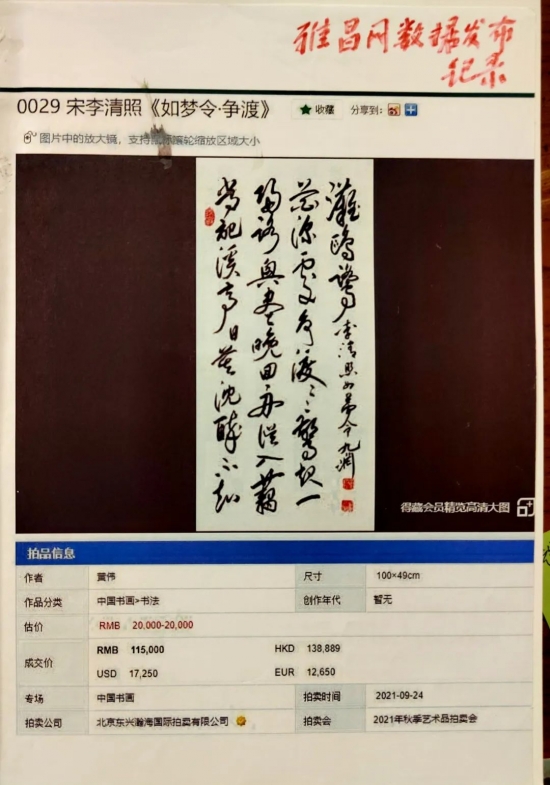 雅昌网数据发布
纪录
0029 宋李清照《如梦令·争渡》
收藏
分享到：
图片中的放大镜，支持鼠标滚轮缩放区域大小
常記溪亭日暮沈醉不知
歸路興尽晚回舟誤入藕
花深處争渡ミ驚起一
灘鷗鷺
李清照如夢令
得藏会员精览高清大图
拍品信息
作者 黄伟 尺寸 100×49cm
作品分类 中国书画>书法 创作年代 暂无
估价 RMB 20,000-20,000
成交价 RMB 115,000 HKD 138,889
USD 17,250 EUR 12,650
专场 中国书画 拍卖时间 2021-09-24
拍卖公司 北京东兴瀚海国际拍卖有限公司 拍卖会 2021年秋季艺术品拍卖会